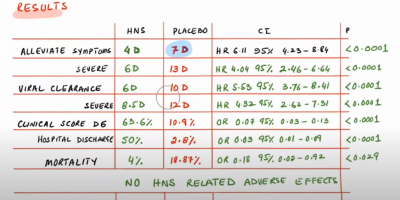 RESULTS
HNS PLACEBO CI P
ALLEVIATE SYMPTOMS 4 D 7 D HR 6.11 95% 4.23-8.84 <0.0001
SEVERE 6D 13 D HR 4.04 95% 2.46-6.64 <0.0001
VIRAL CLEARANCE 6D 10 D HR 5.53 95% 3.76-8.41 <0.0001
SEVERE 8.5D 12 D HR 4.32 95% 2.62-7.31 <0.0001
CLINICAL SCORE D6 63.6% 10.9% OR 0.07 95% 0.03-0.13 <0.0001
HOSPITAL DISCHARGE 50% 2.8% OR 0.03 95% 0.01-0.09 <0.0001
MORTALITY 4% 18.87% OR 0.18 95% 0.02-0.92 <0.029
NO HNS RELATED ADVERSE EFFECTS